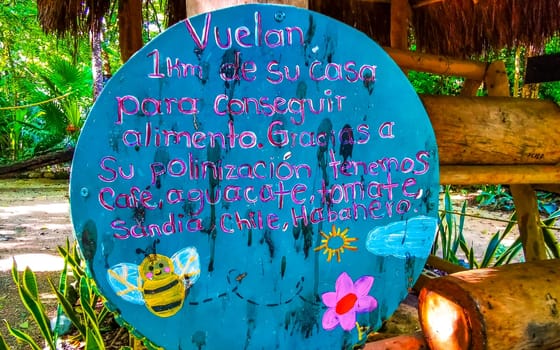 Vuelan
1Km de su casa
para conseguir
alimento. Gracias a
Su polinización tenemos
Café, aguacate, tomate,
Sandia Chile, Habanero.